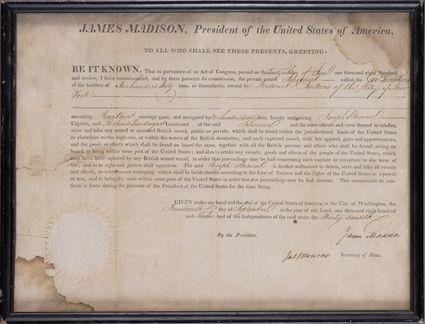 JAMES MADISON, President of the United States of America,
TO ALL WHO SHALL SEE THESE PRESENTS, GREETING:
BE IT KNOWN, That in pursuance of an Act of Congress, passed on the day of one thousand eight hundred
and twelve, I have commissioned, and by these presents do commission, the private armed called the
of the burthen of tons, or thereabouts, owned by Frederick Jenkins of the City of New
York
mounting carriage guns, and navigated by men, hereby authorising Joseph
Captain, and Lieutenant of the said and the other officers and crew thereof to subdue,
seize and take any armed or unarmed British vessel, public or private, which shall be found within the jurisdictional limits of the United States
or elsewhere on the high seas, or within the waters of the British dominions, and such captured vessel, with her apparel, guns and appurtenances,
and the goods or effects which shall be found on board the same, together with all the British persons and others who shall be found acting on
board, to bring within some port of the United States; and also to retake any vessels, goods and effects of the people of the United States, which
may have been captured by any British armed vessel, in order that proceedings may be had concerning such capture or recapture in due form of
law, and as to right and justice shall appertain. The said Joseph is further authorised to detain, seize and take all vessels
and effects, to whomsoever belonging, which shall be liable thereto according to the Law of Nations and the rights of the United States as a power
at war, and to bring the same within some port of the United States in order that due proceedings may be had thereon. This commission to con-
tinue in force during the pleasure of the President of the United States for the time being.
GIVEN under my hand and the seal of the United States of America, at the City of Washington, the
day of in the year of our Lord, one thousand eight hundred
and and of the Independence of the said states the Thirty seventh
By the President, James Madison
Jas Monroe Secretary of State.